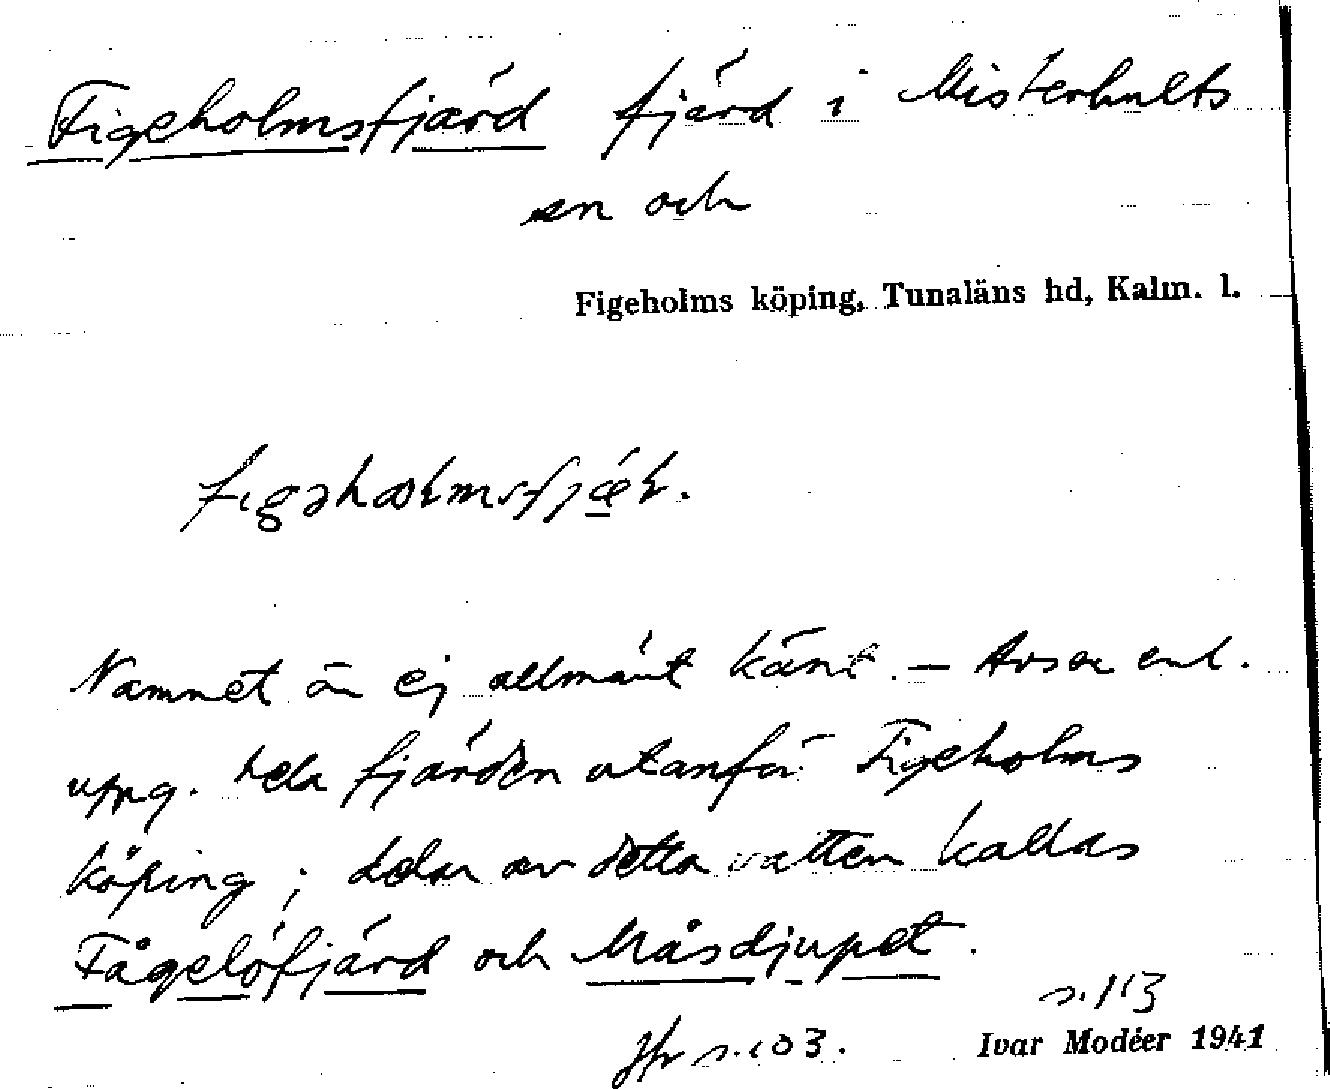 Figeholmsfjärd fjärd i Misterhults
sn och
Figeholms köping, Tunaläns hd, Kalm. l.
Namnet är ej allmänt känt. — Avser enl.
uppg. hela fjärden utanför Figeholms
köping; delar av detta vatten kallas
Fågelöfjärd och Måsdjupet.
s. 113
Jfr s. 103. Ivar Modéer 1941